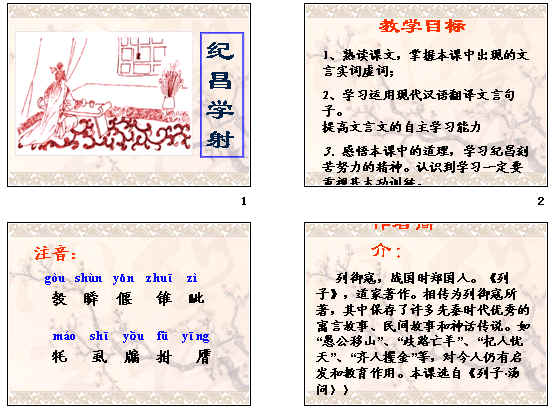 纪昌学射
1
教学目标
1、熟读课文，掌握本课中出现的文
言实词虚词；
2、学习运用现代汉语翻译文言句
子。
提高文言文的自主学习能力
3．感悟本课中的道理，学习纪昌刻
苦努力的精神。认识到学习一定要
重视基本功训练。
2
注音：
gòu shùn yǎn zhuī zì
彀 瞬 偃 锥 眦
máo shī yǒu fǔ yīng
牦 虱 牖 拊 膺
3
作者简
介：
列御寇，战国时郑国人。《列
子》，道家著作。相传为列御寇所
著，其中保存了许多先秦时代优秀的
寓言故事、民间故事和神话传说。如
“愚公移山”、“歧路亡羊”、“杞人忧
天”、“齐人攫金”等，对今人仍有启
发和教育作用。本课选自《列子·汤
问》）
4